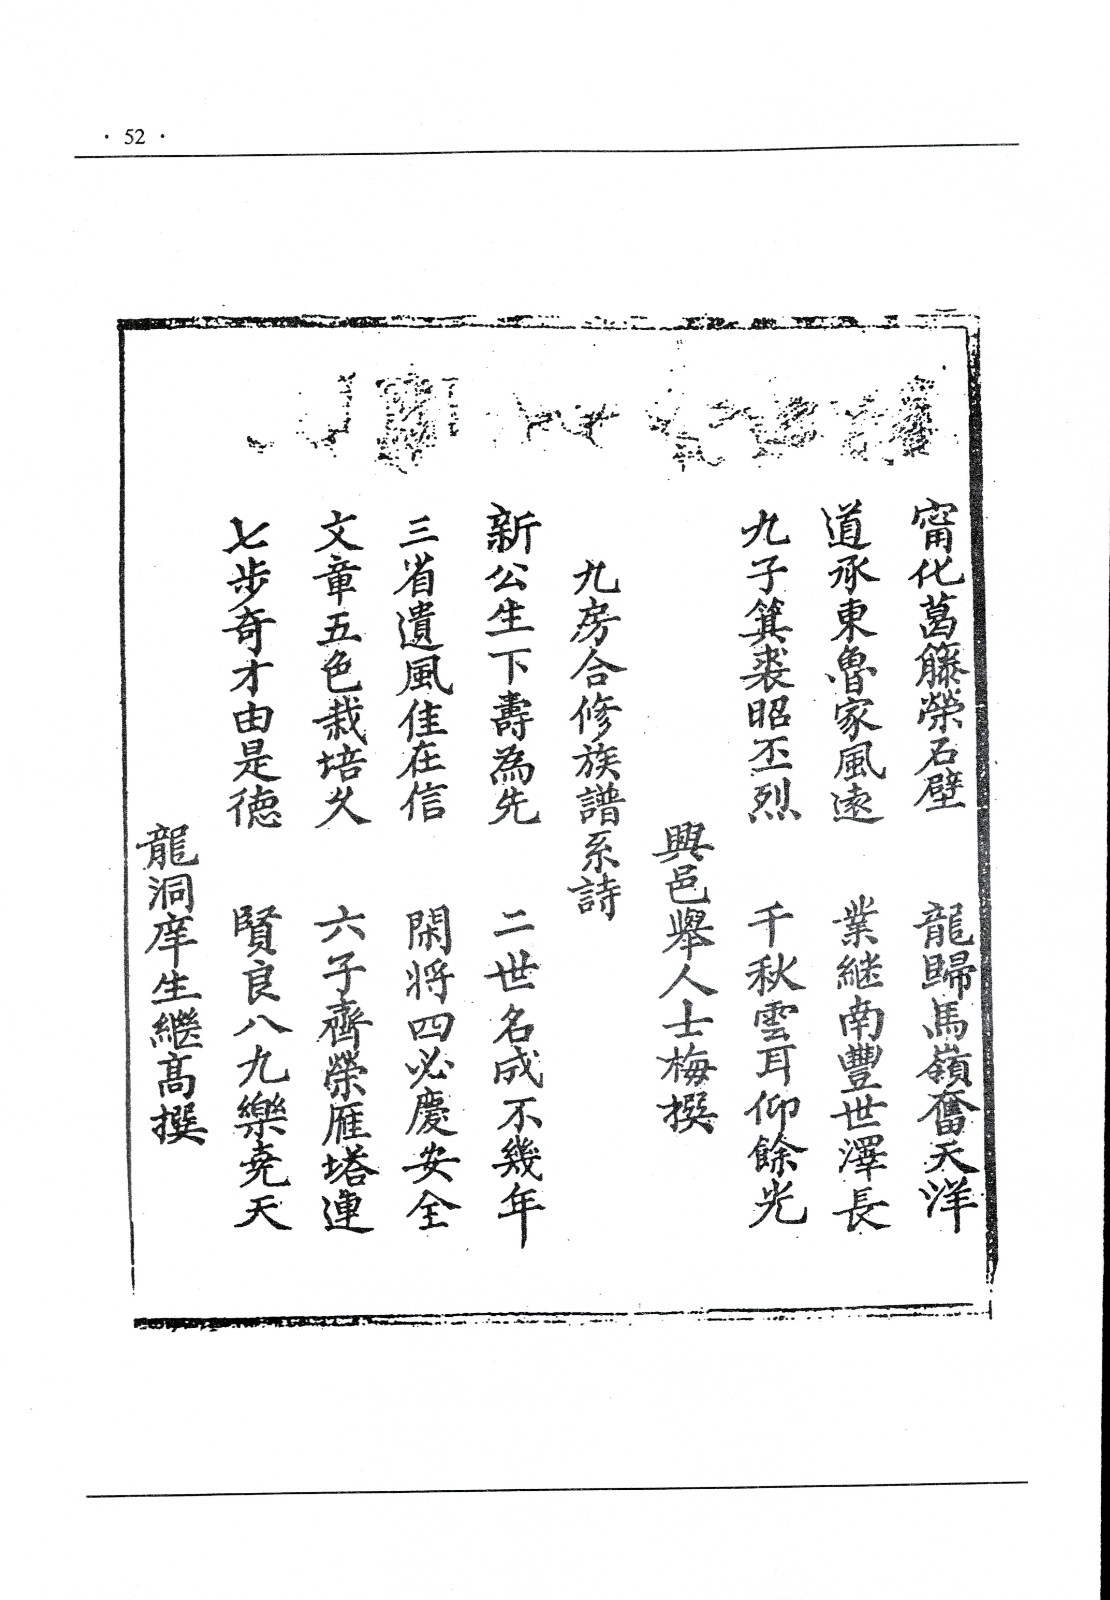 · 52 ·
甯化葛籐榮石壁　龍歸馬嶺奮天洋
道承東魯家風遠　業継南豐世澤長
九子箕裘昭丕烈　千秋雲耳仰餘光
興邑舉人士梅撰
九房合修族譜系詩
新公生下壽為先　二世名成不幾年
三省遺風佳在信　閑將四必慶安全
文章五色栽培久　六子齊榮雁塔連
七步奇才由是德　賢良八九樂堯天
龍洞庠生繼高撰